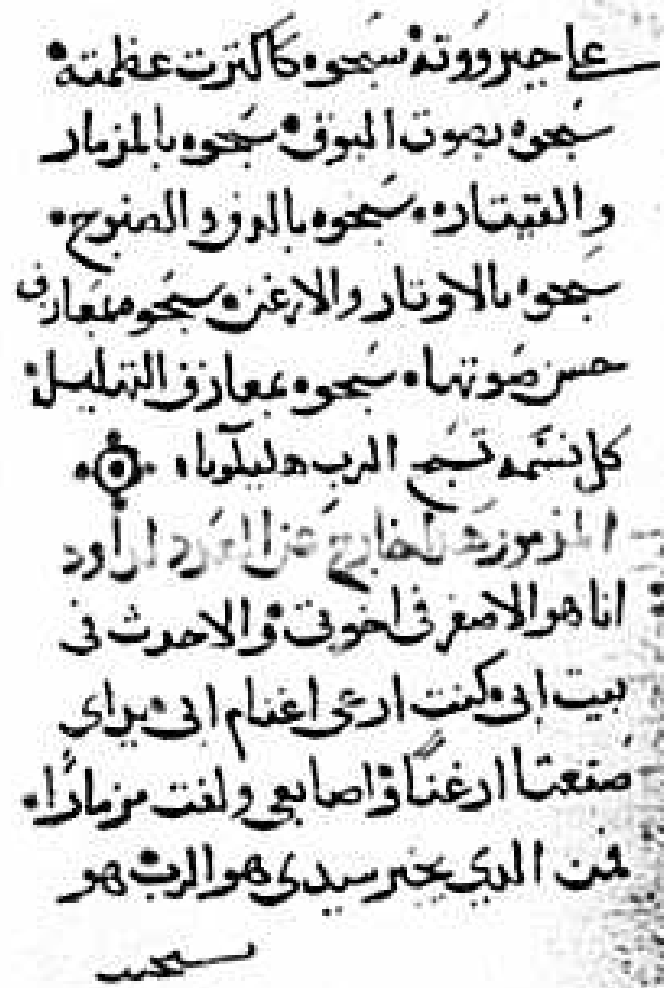 علي جبرووته سبحوه ككثرت عظمته
سبحوه بصوت البوق سبحوه بالمزمار
والقيتار سبحوه بالدف والصنوج
سبحوه بالاوتار والارغن سبحوه بمعازف
حسن صوتها سبحوه بمعازف التهليل
كل نسمه تسبح الرب هليلويا
المزمور الخارج عن العدد لداود
انا هو الاصغر في اخوتي والاحدث في
بيت ابي كنت ارعي اغنام ابي يداي
صنعتا ارغنا واصابعي ولفت مزمارا
فمن الدي يخبر سيدي هو الرب هو